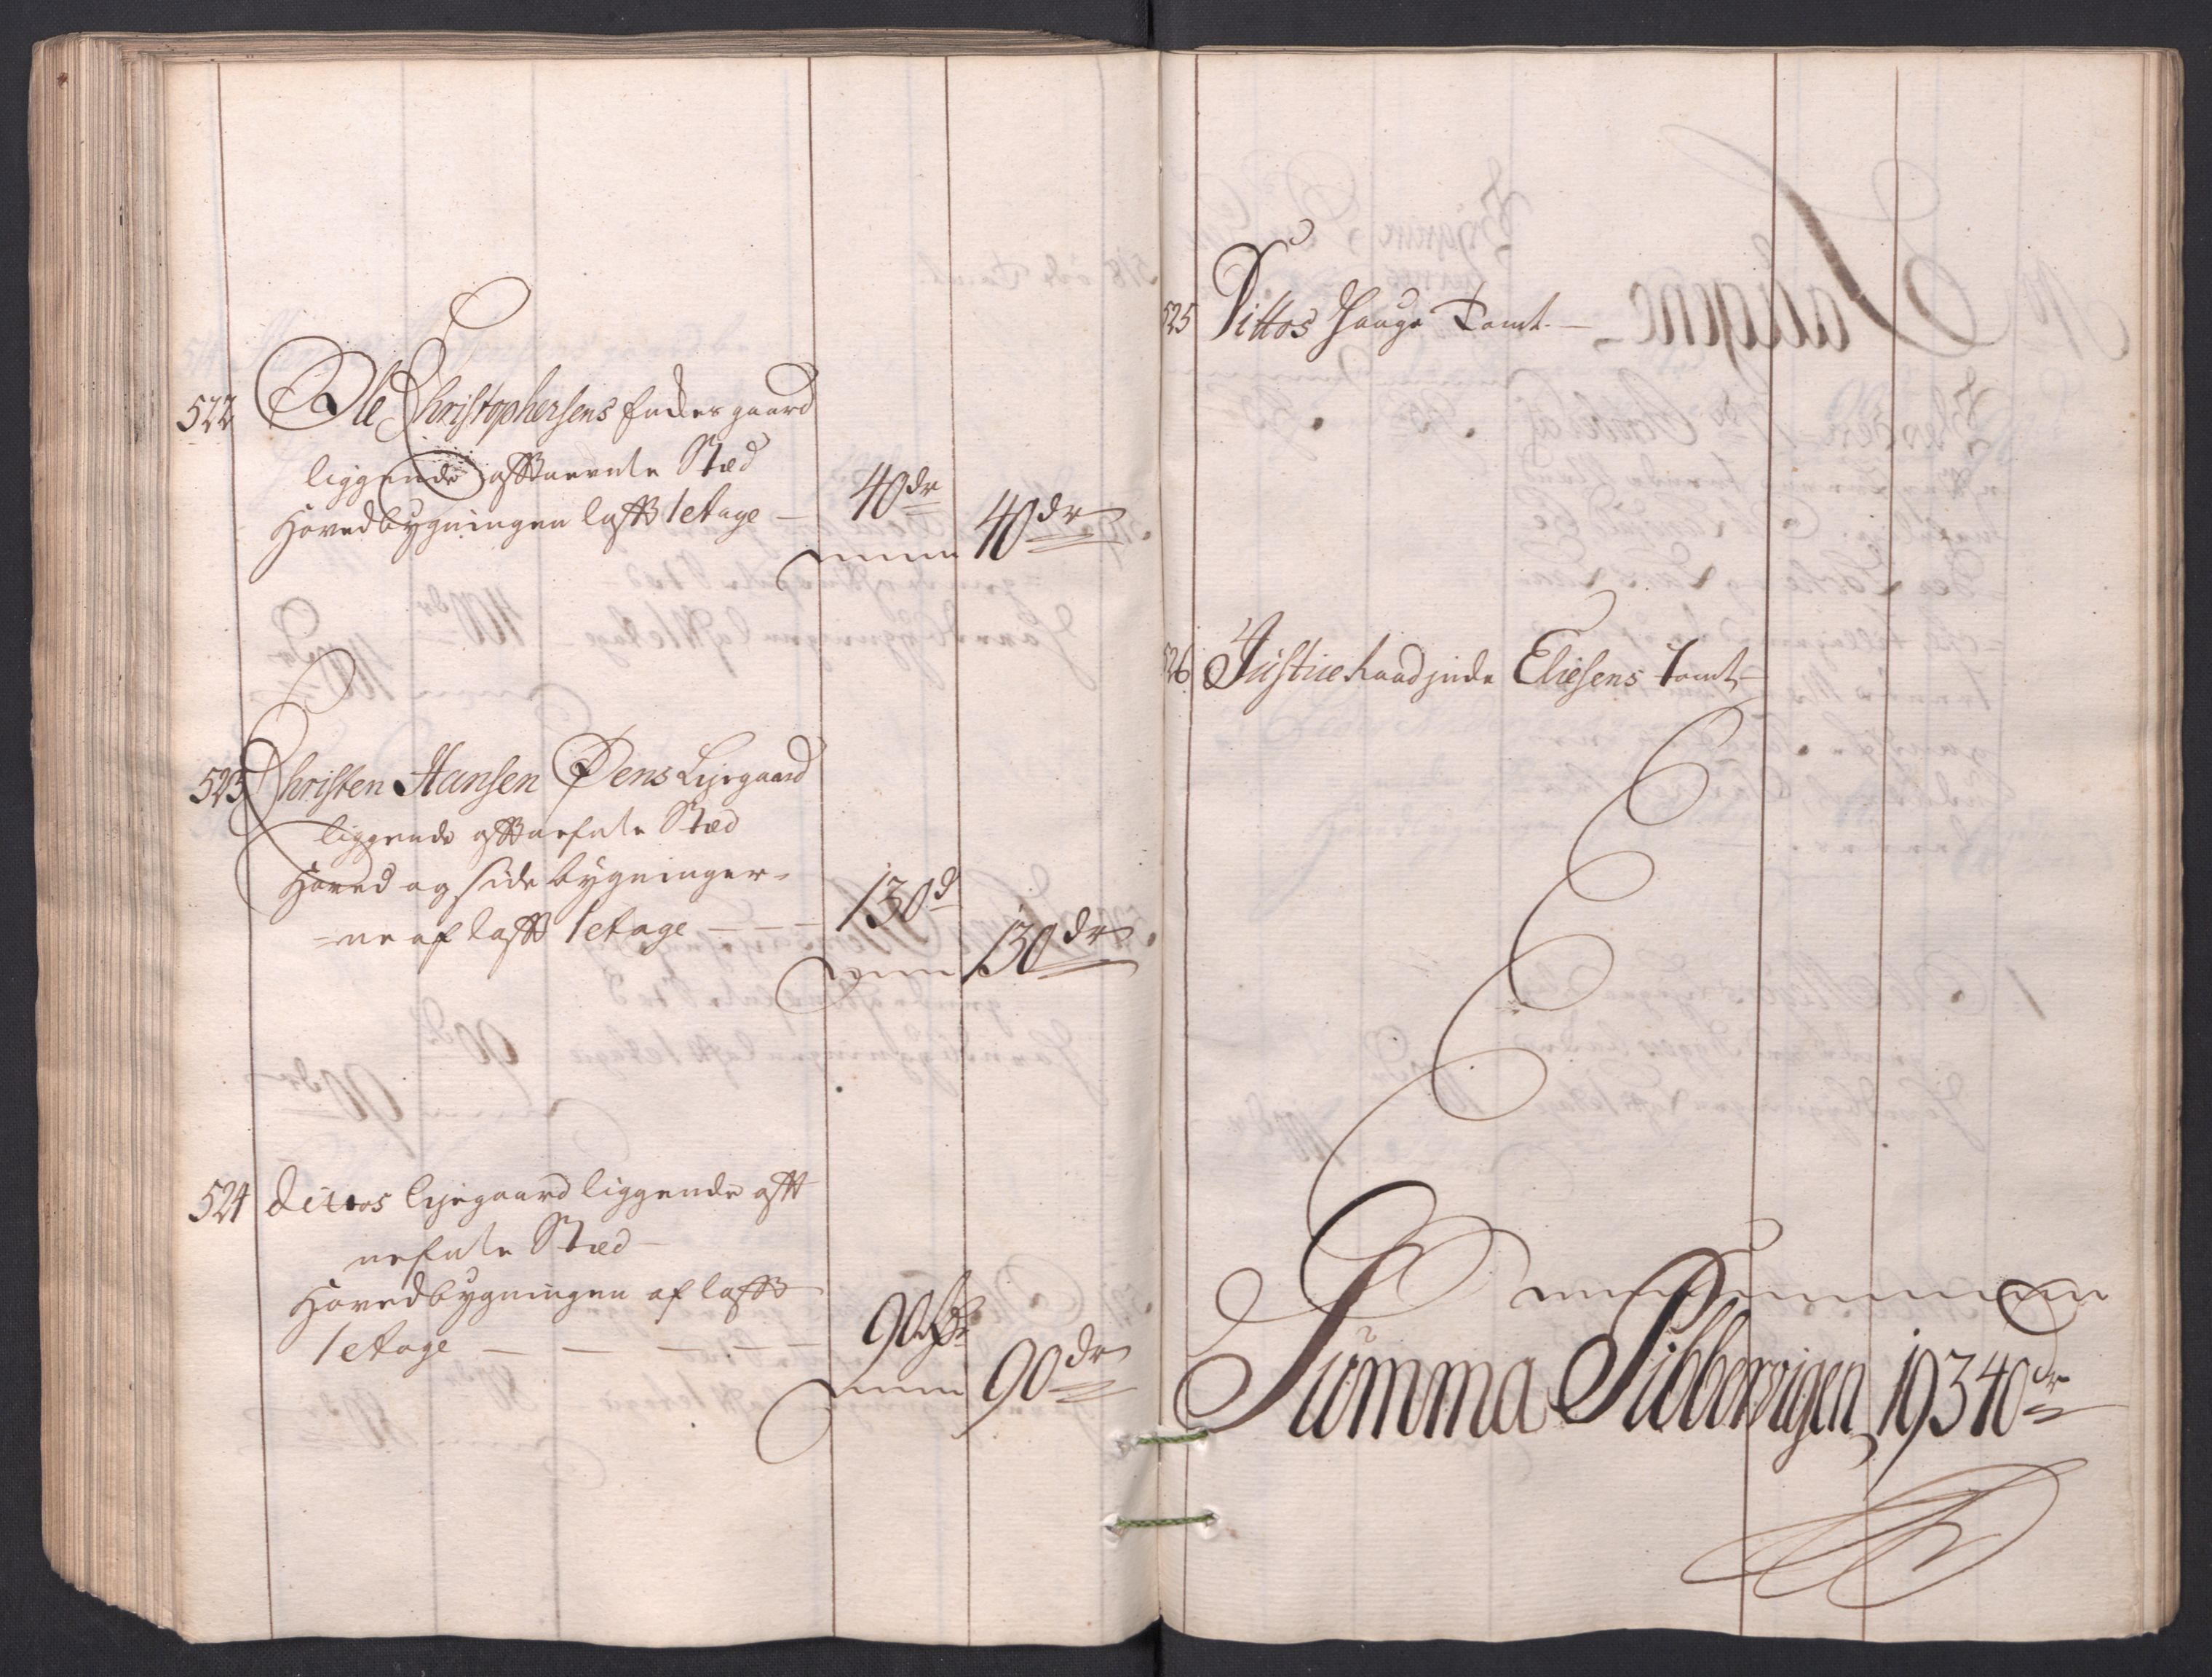 522 Ole Christophersens gaard
liggende Stæd
Hovedbygningen laft 1 etage — 40 dr
40 dr
523 Christen Hansen Øens Lejegaard
liggende Stæd
Hoved og side bygninger-
=ne af laft 1 etage — — — 130 d
130 dr
524 dittos lejegaard liggende
Stæd
Hovedbygningen af laft
1 etage — — — — — 90 dr
90 dr
525 Dittos Hauge Tomt —
526 Justice Raad Eliesens Tomt —
Summa Pibbervigen 19340 dr